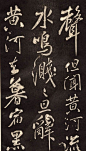 聲但聞黄河流
水鳴濺々旦辭
黄河去暮宿黑